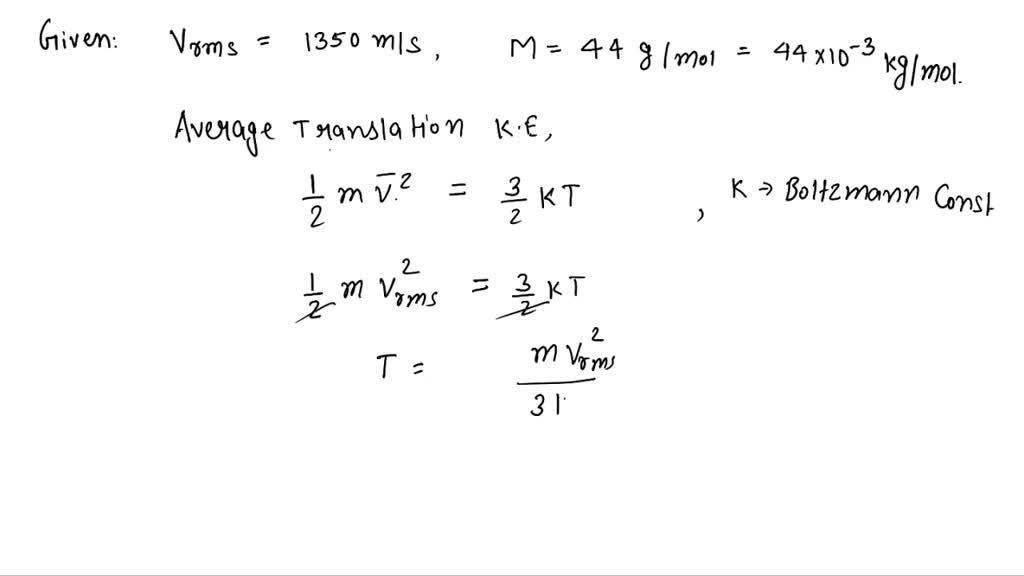 Given: Vrms = 1350 m/s, M = 44 g/mol = 44×10⁻³ kg/mol.
Average Translation K.E,
1/2 m v̄.² = 3/2 KT , K → Boltzmann Const
1/2 m Vrms² = 3/2 KT
T = m Vrms² / 31